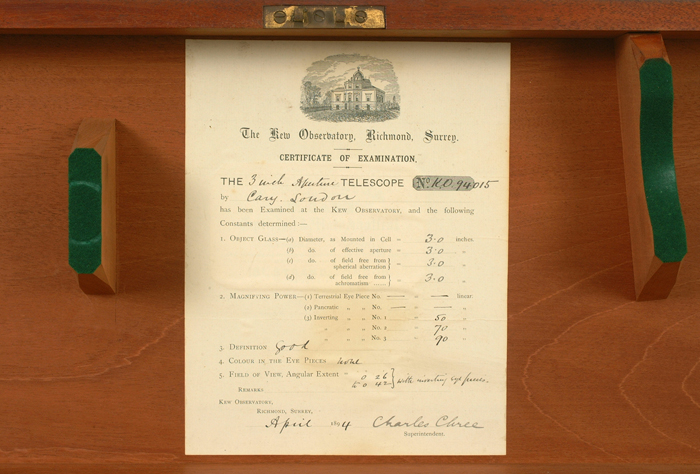 The Kew Observatory, Richmond, Surrey.
CERTIFICATE OF EXAMINATION.
THE 3 inch Aperture TELESCOPE No. K.O. 94015
by Cary. London
has been Examined at the KEW OBSERVATORY, and the following
Constants determined:—
1. OBJECT GLASS—(a) Diameter, as Mounted in Cell = 3.0 inches
(b) do. of effective aperture = 3.0 „
(c) do. of field free from spherical aberration } = 3.0 „
(d) do. of field free from achromatism ...... } = 3.0 „
2. MAGNIFYING POWER—(1) Terrestrial Eye Piece No. — = — linear
(2) Pancratic „ „ No. — = — „
(3) Inverting „ „ No. 1 = 50 „
„ „ „ No. 2 = 70 „
„ „ „ No. 3 90 „
3. DEFINITION Good
4. COLOUR IN THE EYE PIECES none
5. FIELD OF VIEW, Angular Extent = 0 26
to 0 42 } with inverting eye pieces.
REMARKS
KEW OBSERVATORY,
RICHMOND, SURREY,
April 1894 Charles Chree
Superintendent.